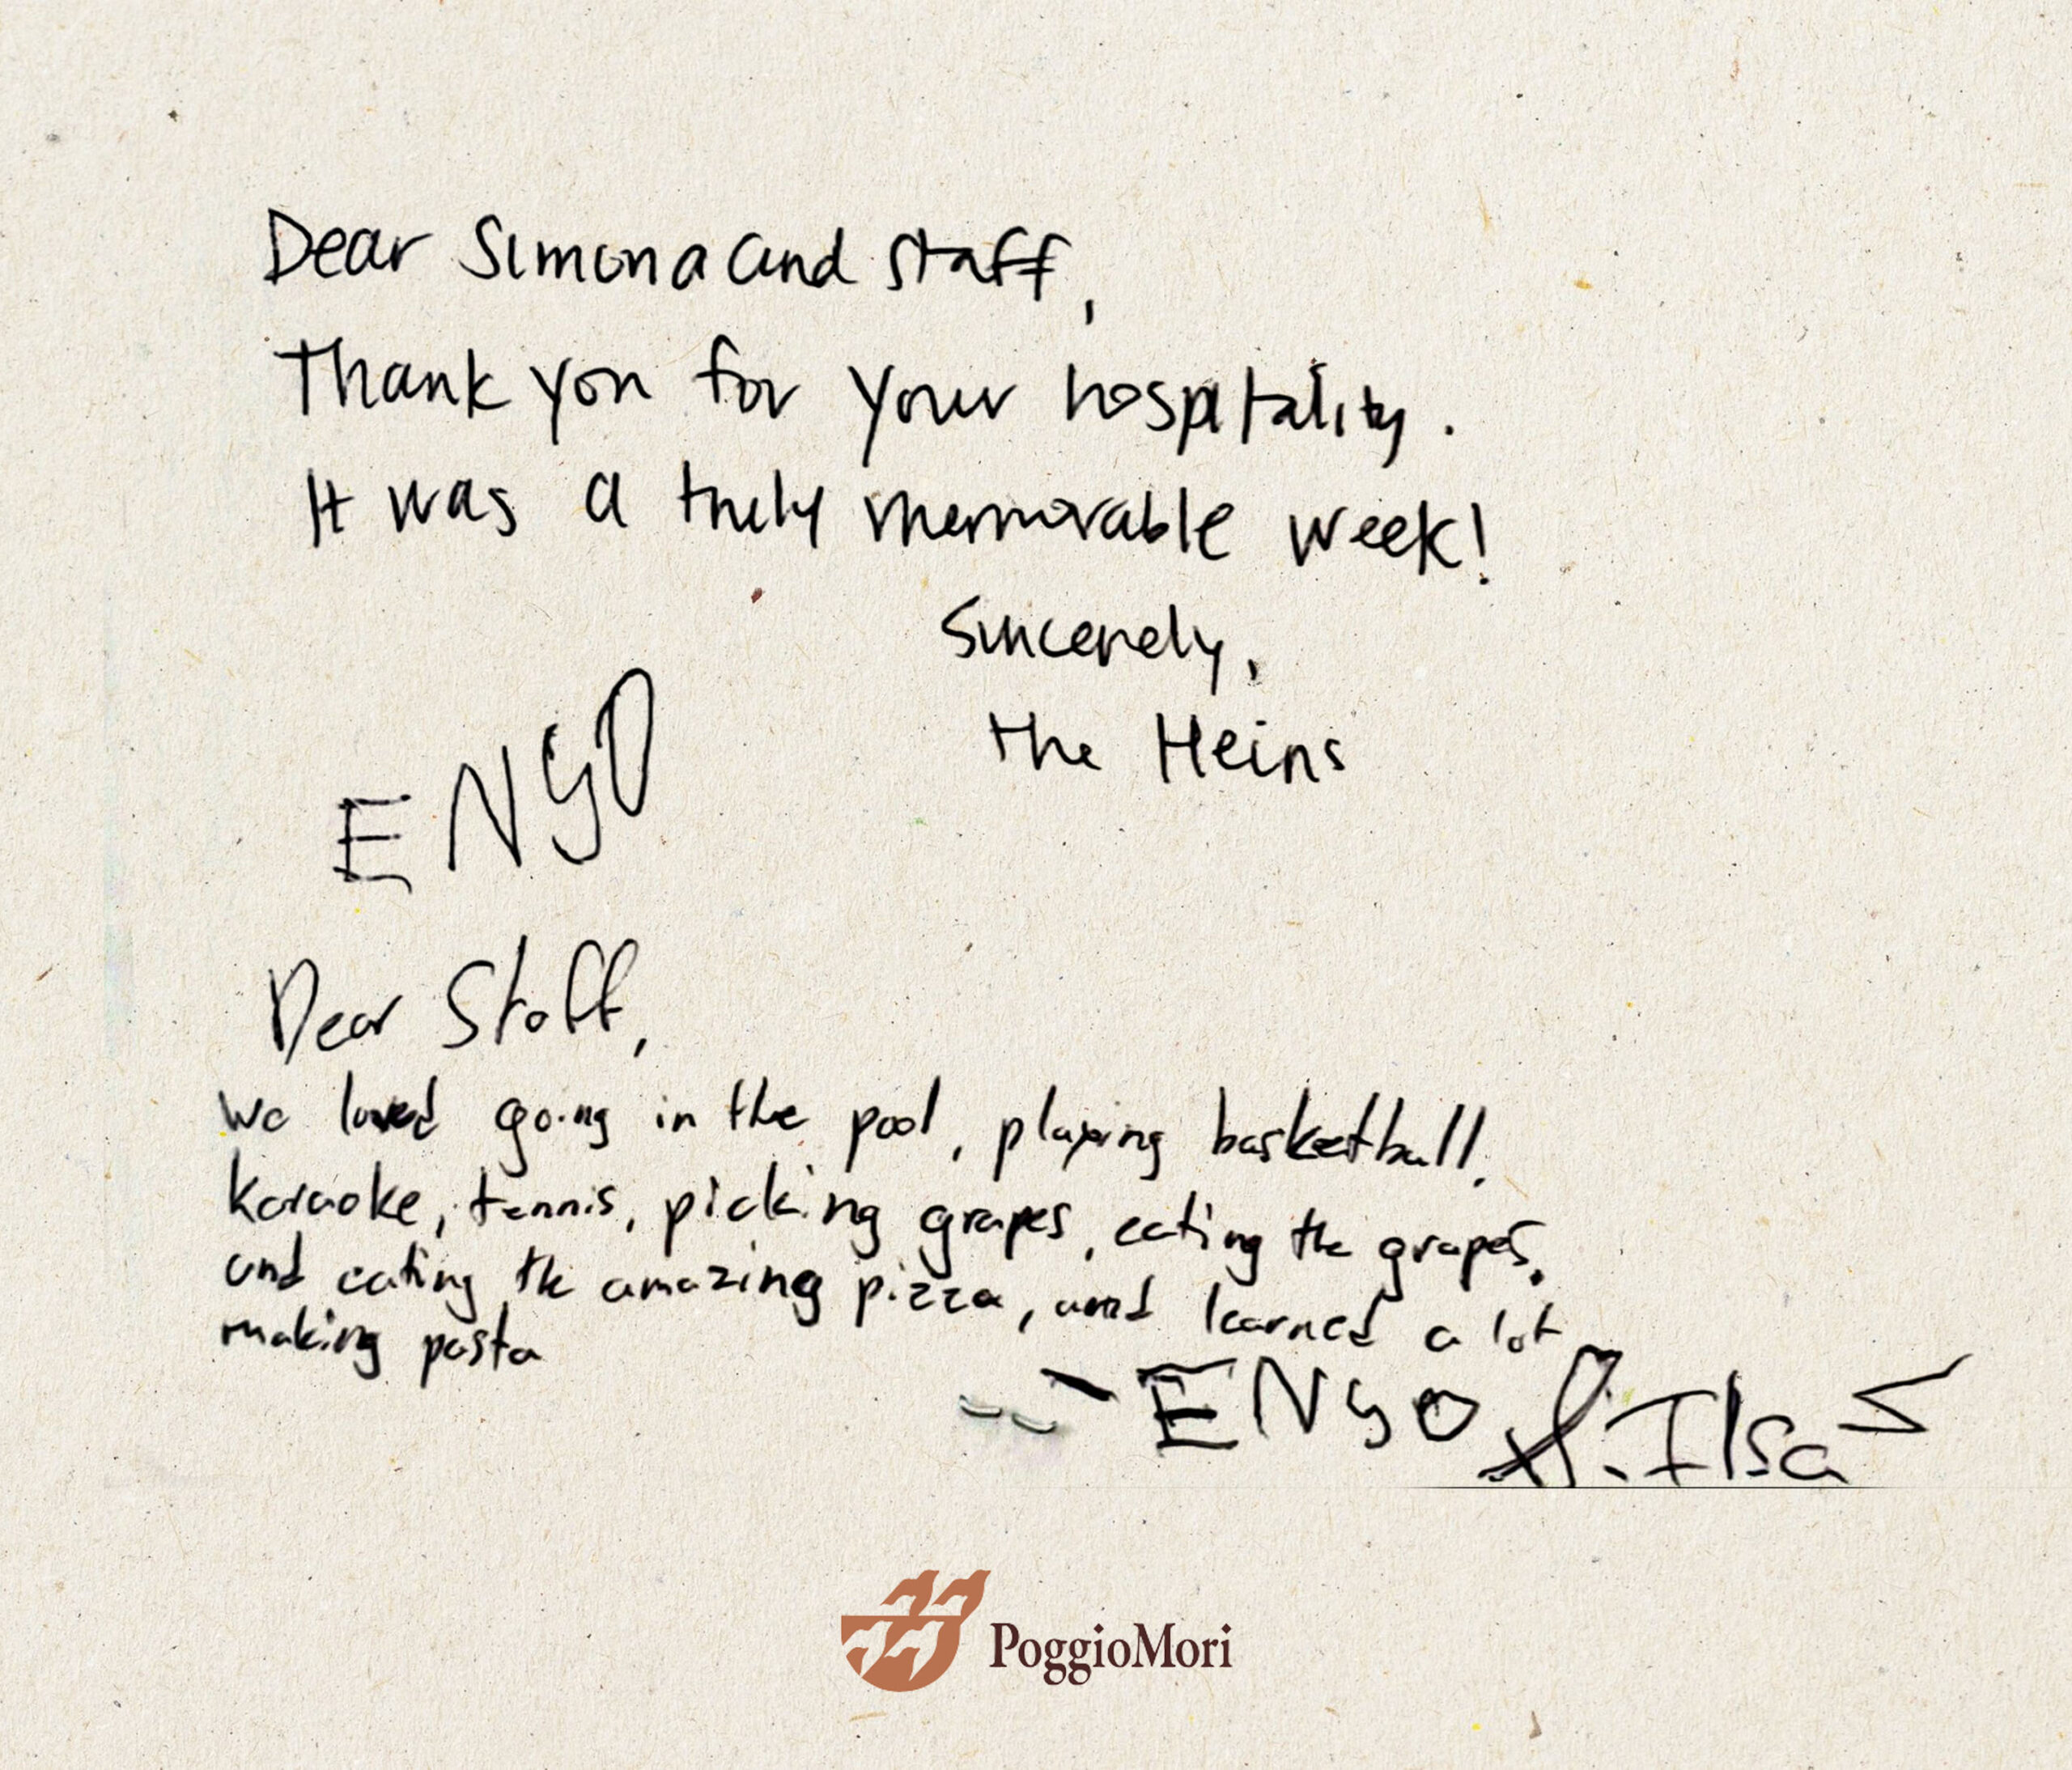 Dear Simona and staff,
Thank you for your hospitality.
It was a truly memorable week!
Sincerely,
the Heins
ENSO
Dear Staff,
We loved going in the pool, playing basketball,
karaoke, tennis, picking grapes, eating the grapes,
and eating the amazing pizza, and learned a lot
making pasta
- ENSO &. Ilsa
PoggioMori